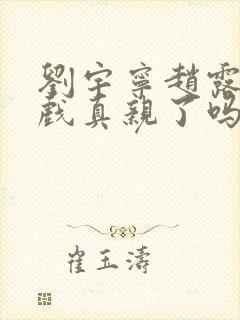 劉宇寧趙露
戲真親了吗
崔玉濤